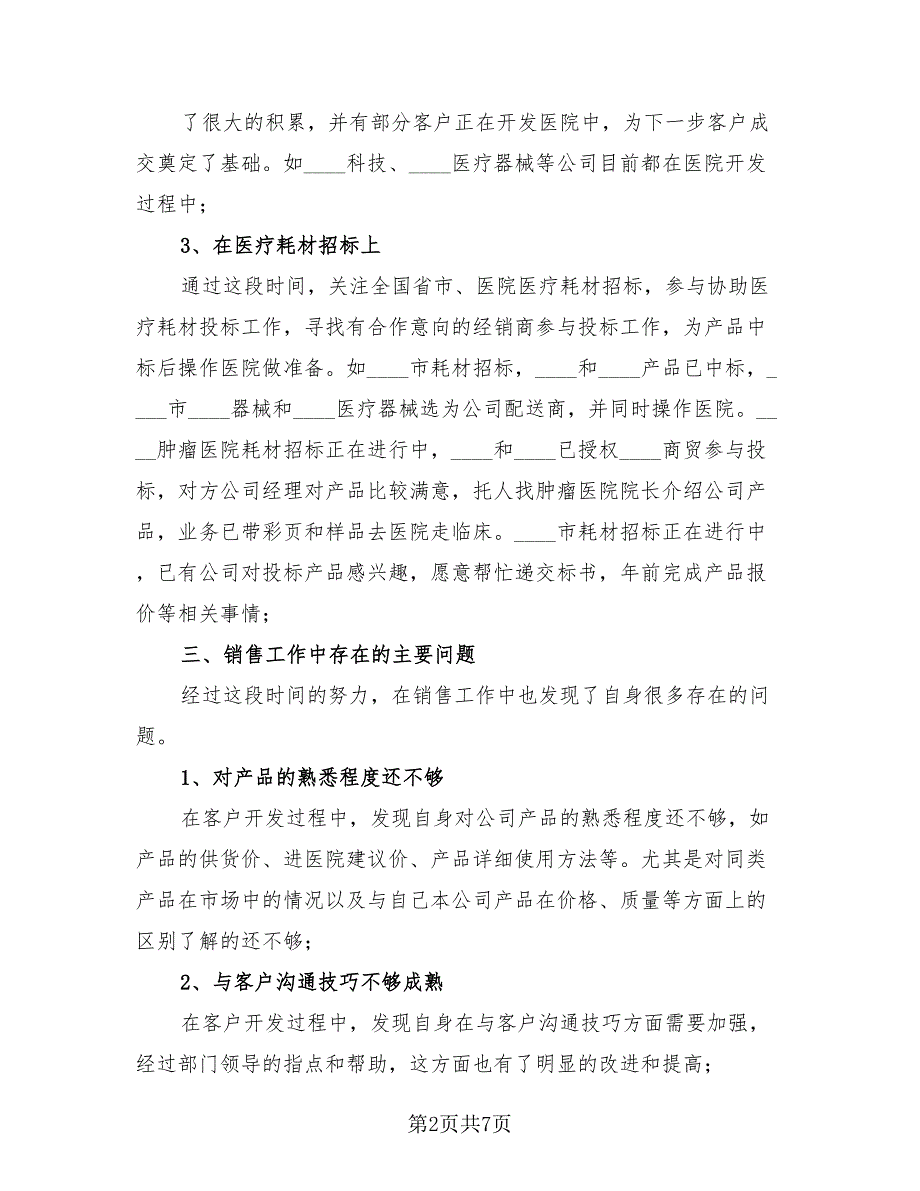 了很大的积累，并有部分客户正在开发医院中，为下一步客户成
交奠定了基础。如____科技、____医疗器械等公司目前都在医院开发
过程中；
3、在医疗耗材招标上
通过这段时间，关注全国省市、医院医疗耗材招标，参与协助医
疗耗材投标工作，寻找有合作意向的经销商参与投标工作，为产品中
标后操作医院做准备。如____市耗材招标，____和____产品已中标，_
___市____器械和____医疗器械选为公司配送商，并同时操作医院。__
__肿瘤医院耗材招标正在进行中，____和____已授权____商贸参与投
标，对方公司经理对产品比较满意，托人找肿瘤医院院长介绍公司产
品，业务已带彩页和样品去医院走临床。____市耗材招标正在进行中
，已有公司对投标产品感兴趣，愿意帮忙递交标书，年前完成产品报
价等相关事情；
三、销售工作中存在的主要问题
经过这段时间的努力，在销售工作中也发现了自身很多存在的问
题。
1、对产品的熟悉程度还不够
在客户开发过程中，发现自身对公司产品的熟悉程度还不够，如
产品的供货价、进医院建议价、产品详细使用方法等。尤其是对同类
产品在市场中的情况以及与自己本公司产品在价格、质量等方面上的
区别了解的还不够；
2、与客户沟通技巧不够成熟
在客户开发过程中，发现自身在与客户沟通技巧方面需要加强，
经过部门领导的指点和帮助，这方面也有了明显的改进和提高；
第2页共7页